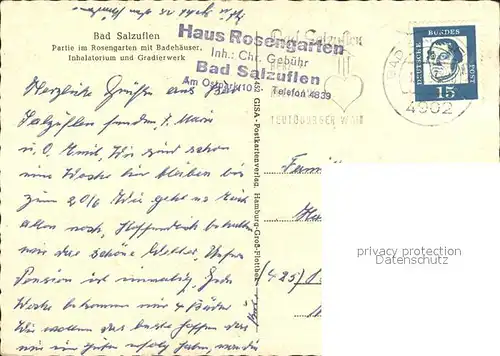 Bad Salzuflen
Partie im Rosengarten mit Badehäuser,
Inhalatorium und Gradierwerk
Haus Rosengarten
Inh.: Chr. Gebühr
Bad Salzuflen
Am Ostpark 10 Telefon 4839
Bad Salzuflen
TEUTOBURGER WALD
DEUTSCHE BUNDESPOST
15
BAD
4902
GISA-Postkartenverlag, Hamburg-Groß-Flottbek
Herzliche Grüße aus Bad
Salzuflen senden
u. O. Emil. Wir sind schon
eine Woche hier bleiben bis
zum 20/6 Wie geht es Euch
allen noch, Hoffendlich behalten
wir das schöne Wetter, Unsere
Pension ist einmalig, Jede
Woche bekommen wir 4 Bäder
Wir wollen das beste hoffen das
wir ein guten erfolg haben,
Famil
(425)
privacy protection
Datenschutz